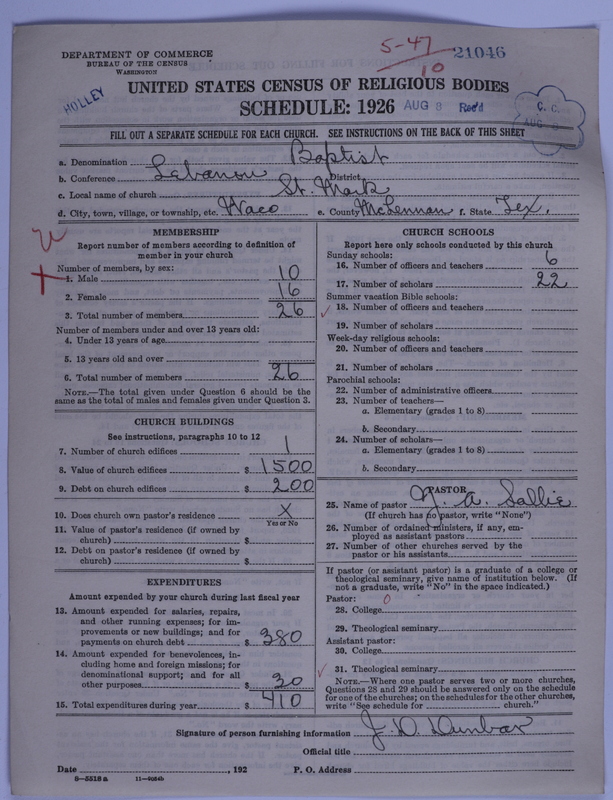 DEPARTMENT OF COMMERCE
BUREAU OF THE CENSUS
WASHINGTON
5-47
10
21046
UNITED STATES CENSUS OF RELIGIOUS BODIES
HOLLEY
SCHEDULE: 1926 AUG 8 Rec'd
C. C.
AUG
FILL OUT A SEPARATE SCHEDULE FOR EACH CHURCH. SEE INSTRUCTIONS ON THE BACK OF THIS SHEET
a. Denomination Baptist
b. Conference Lebanon District
c. Local name of church St. Mark
d. City, town, village, or township, etc. Waco e. County McLennan f. State Tex.
MEMBERSHIP
Report number of members according to definition of
member in your church
Number of members, by sex:
1. Male 10
2. Female 16
3. Total number of members 26
Number of members under and over 13 years old:
4. Under 13 years of age
5. 13 years old and over
6. Total number of members 26
NOTE.—The total given under Question 6 should be the
same as the total of males and females given under Question 3.
CHURCH BUILDINGS
See instructions, paragraphs 10 to 12
7. Number of church edifices 1
8. Value of church edifices $ 1500
9. Debt on church edifices $ 200
10. Does church own pastor's residence X
Yes or No
11. Value of pastor's residence (if owned by
church) $
12. Debt on pastor's residence (if owned by
church) $
EXPENDITURES
Amount expended by your church during last fiscal year
13. Amount expended for salaries, repairs,
and other running expenses; for im-
provements or new buildings; and for
payments on church debt $ 380
14. Amount expended for benevolences, in-
cluding home and foreign missions; for
denominational support; and for all
other purposes $ 30
15. Total expenditures during year $ 410
CHURCH SCHOOLS
Report here only schools conducted by this church
Sunday schools:
16. Number of officers and teachers 6
17. Number of scholars 22
Summer vacation Bible schools:
18. Number of officers and teachers
19. Number of scholars
Week-day religious schools:
20. Number of officers and teachers
21. Number of scholars
Parochial schools:
22. Number of administrative officers
23. Number of teachers—
a. Elementary (grades 1 to 8)
b. Secondary
24. Number of scholars—
a. Elementary (grades 1 to 8)
b. Secondary
PASTOR
25. Name of pastor J. A. Sallie
(If church has no pastor, write "None")
26. Number of ordained ministers, if any, em-
ployed as assistant pastors
27. Number of other churches served by the
pastor or his assistants
If pastor (or assistant pastor) is a graduate of a college or
theological seminary, give name of institution below. (If
not a graduate, write "No" in the space indicated.)
Pastor: 0
28. College
29. Theological seminary
Assistant pastor:
30. College
31. Theological seminary
NOTE.—Where one pastor serves two or more churches,
Questions 28 and 29 should be answered only on the schedule
for one of the churches; on the schedules for the other churches,
write "See schedule for church."
Signature of person furnishing information J. D. Dunbar
Official title
Date , 192 P. O. Address
8—5518 a 11—9024b